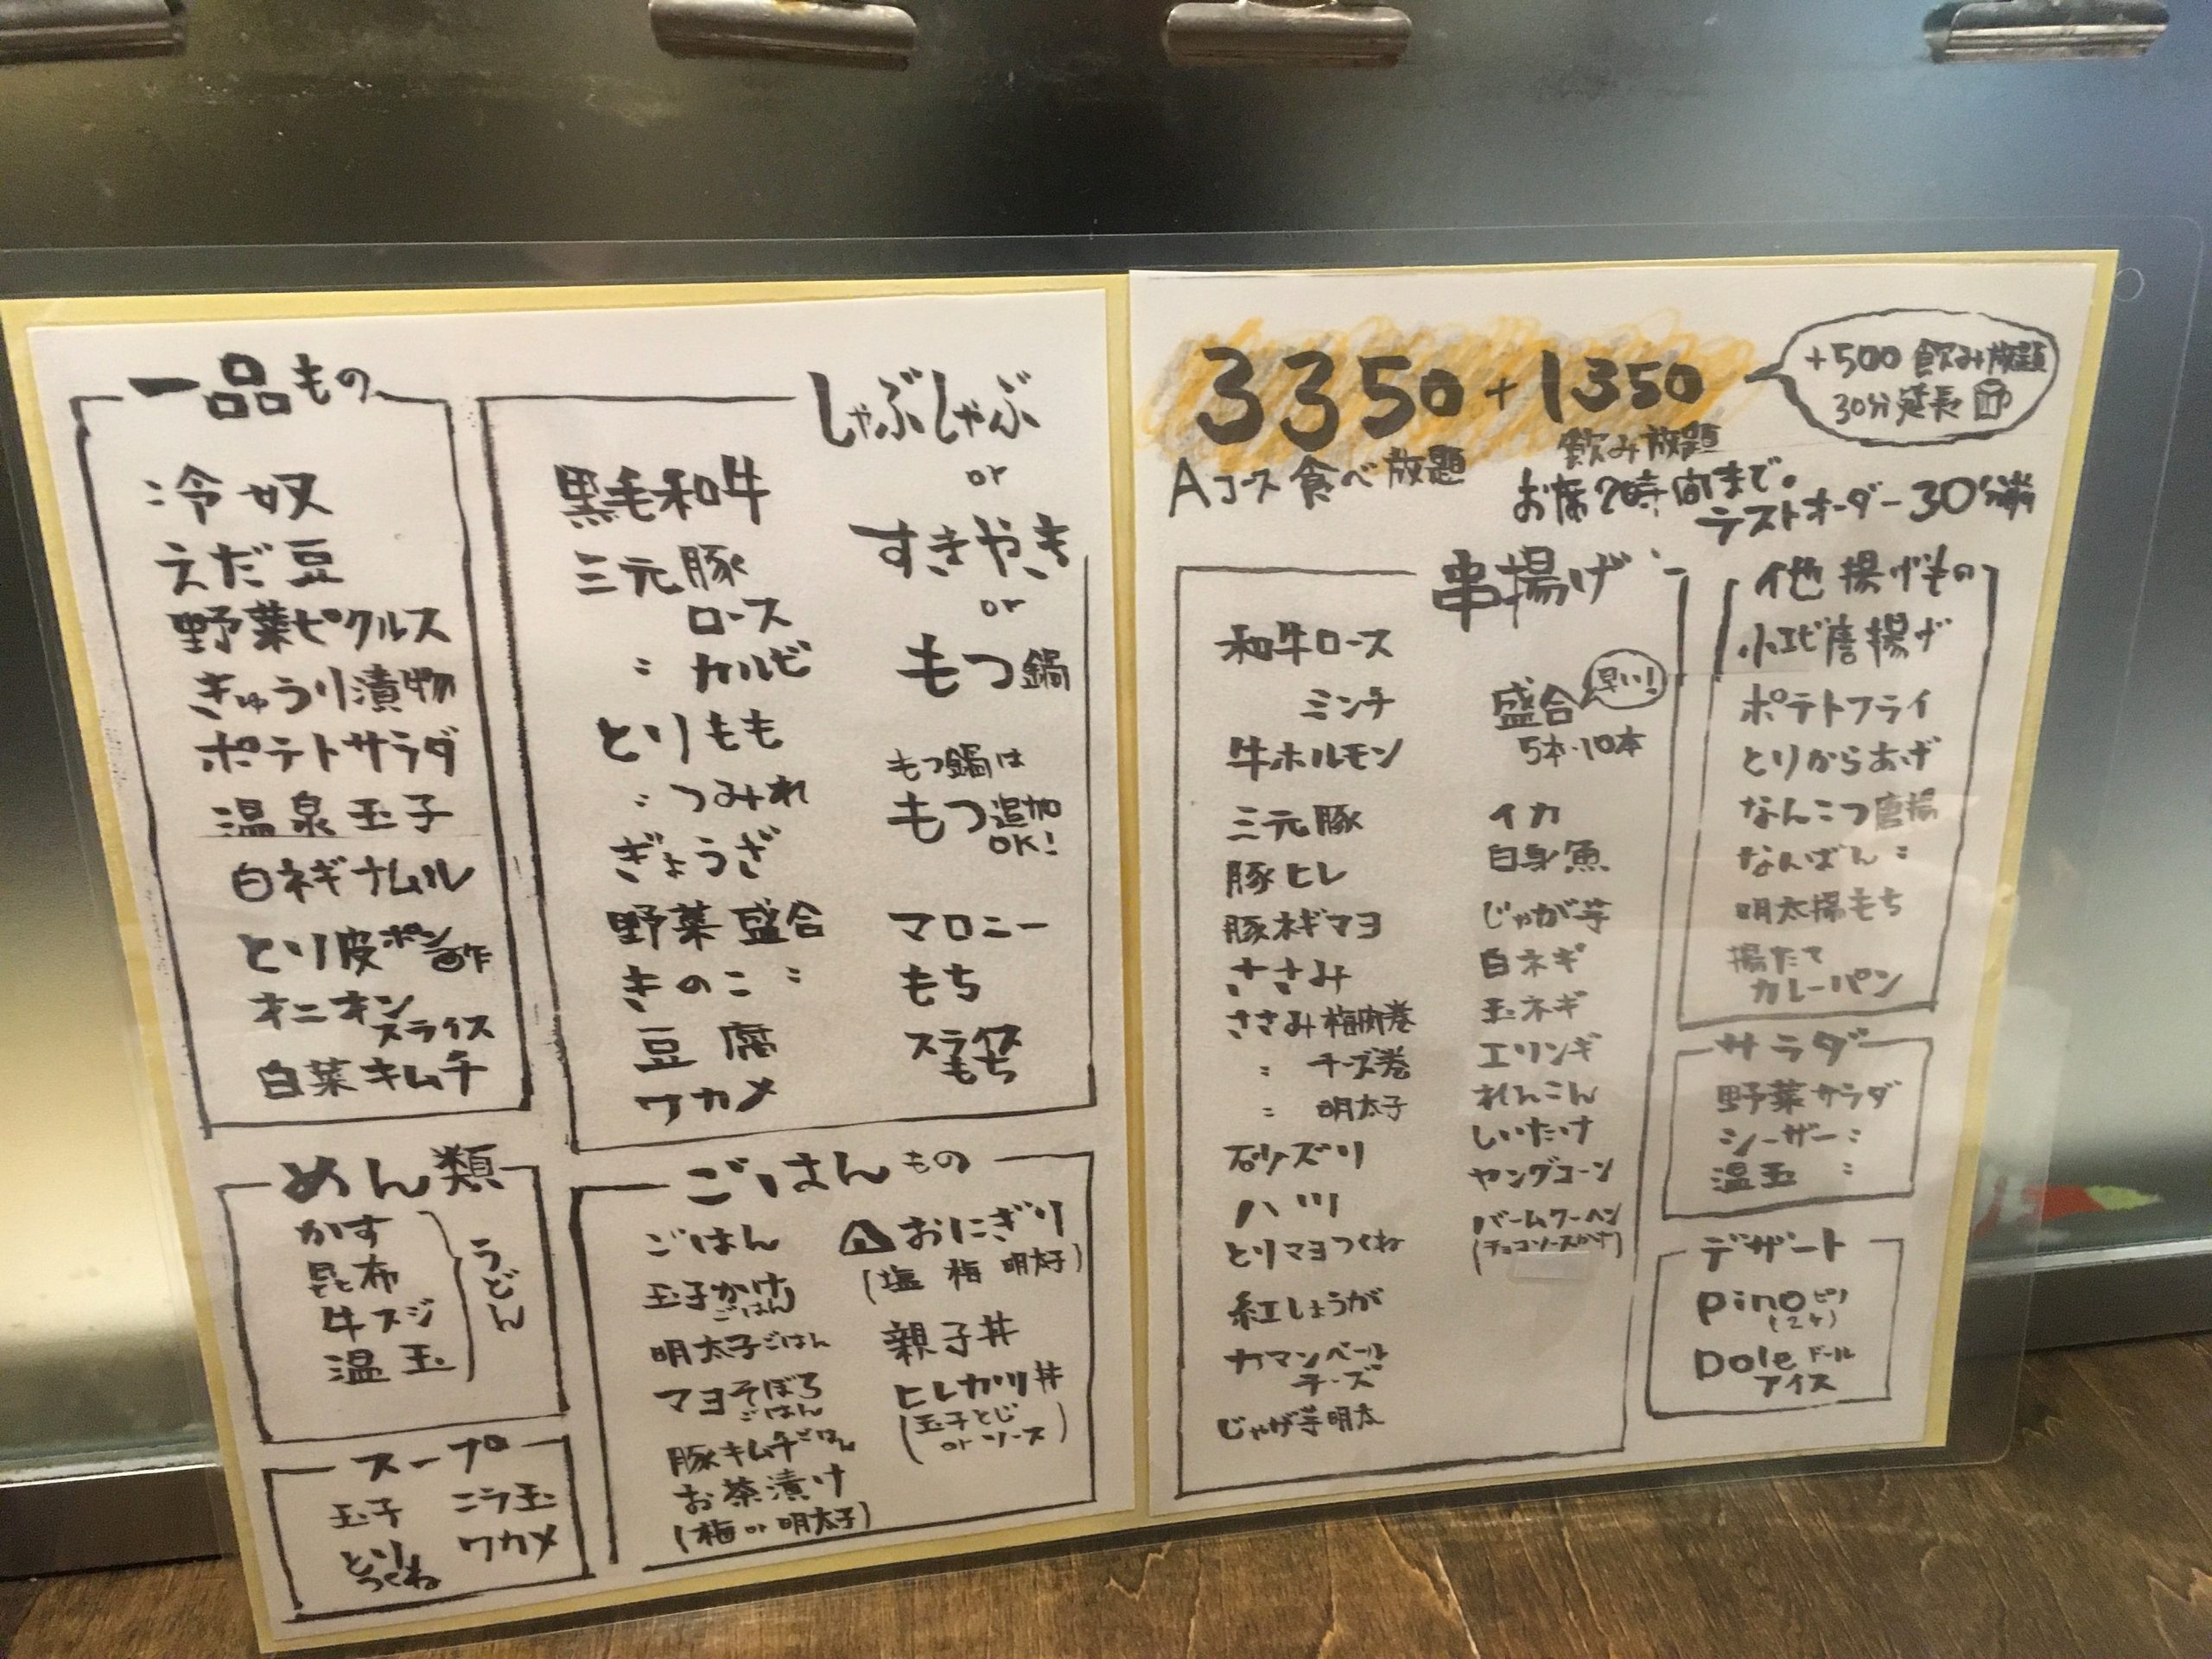 一品もの
冷奴
えだ豆
野菜ピクルス
きゅうり漬物
ポテトサラダ
温泉玉子
白ネギナムル
とり皮ポン酢
オニオン
スライス
白菜キムチ
しゃぶしゃぶ
or
すきやき
or
もつ鍋
もつ鍋は
もつ追加
OK!
黒毛和牛
三元豚
ロース
〃 カルビ
とりもも
〃 つみれ
ぎょうざ
野菜盛合
きのこ 〃
豆腐
ワカメ
マロニー
もち
スライス
もち
めん類
かす
昆布
牛スジ
温玉
うどん
スープ
玉子
ニラ玉
とり
つくね
ワカメ
ごはんもの
ごはん
玉子かけ
ごはん
明太子ごはん
マヨそぼろ
ごはん
豚キムチごはん
お茶漬け
(梅 or 明太子)
おにぎり
(塩 梅 明太子)
親子丼
ヒレカツ丼
(玉子とじ
or ソース)
3350+1350
+500 飲み放題
30分延長
Aコース食べ放題
飲み放題
お席2時間まで。
ラストオーダー30分前
串揚げ
和牛ロース
ミンチ
牛ホルモン
三元豚
豚ヒレ
豚ネギマヨ
ささみ
ささみ梅肉巻
〃 チーズ巻
〃 明太子
砂ズリ
ハツ
とりマヨつくね
紅しょうが
カマンベール
チーズ
じゃが芋明太
盛合
早い!
5本・10本
イカ
白身魚
じゃが芋
白ネギ
玉ネギ
エリンギ
れんこん
しいたけ
ヤングコーン
バームクーヘン
(チョコソースがけ)
他揚げもの
小エビ唐揚げ
ポテトフライ
とりからあげ
なんこつ唐揚
なんばん 〃
明太揚もち
揚たて
カレーパン
サラダ
野菜サラダ
シーザー 〃
温玉 〃
デザート
pino ピノ
(2ケ)
Dole ドール
アイス